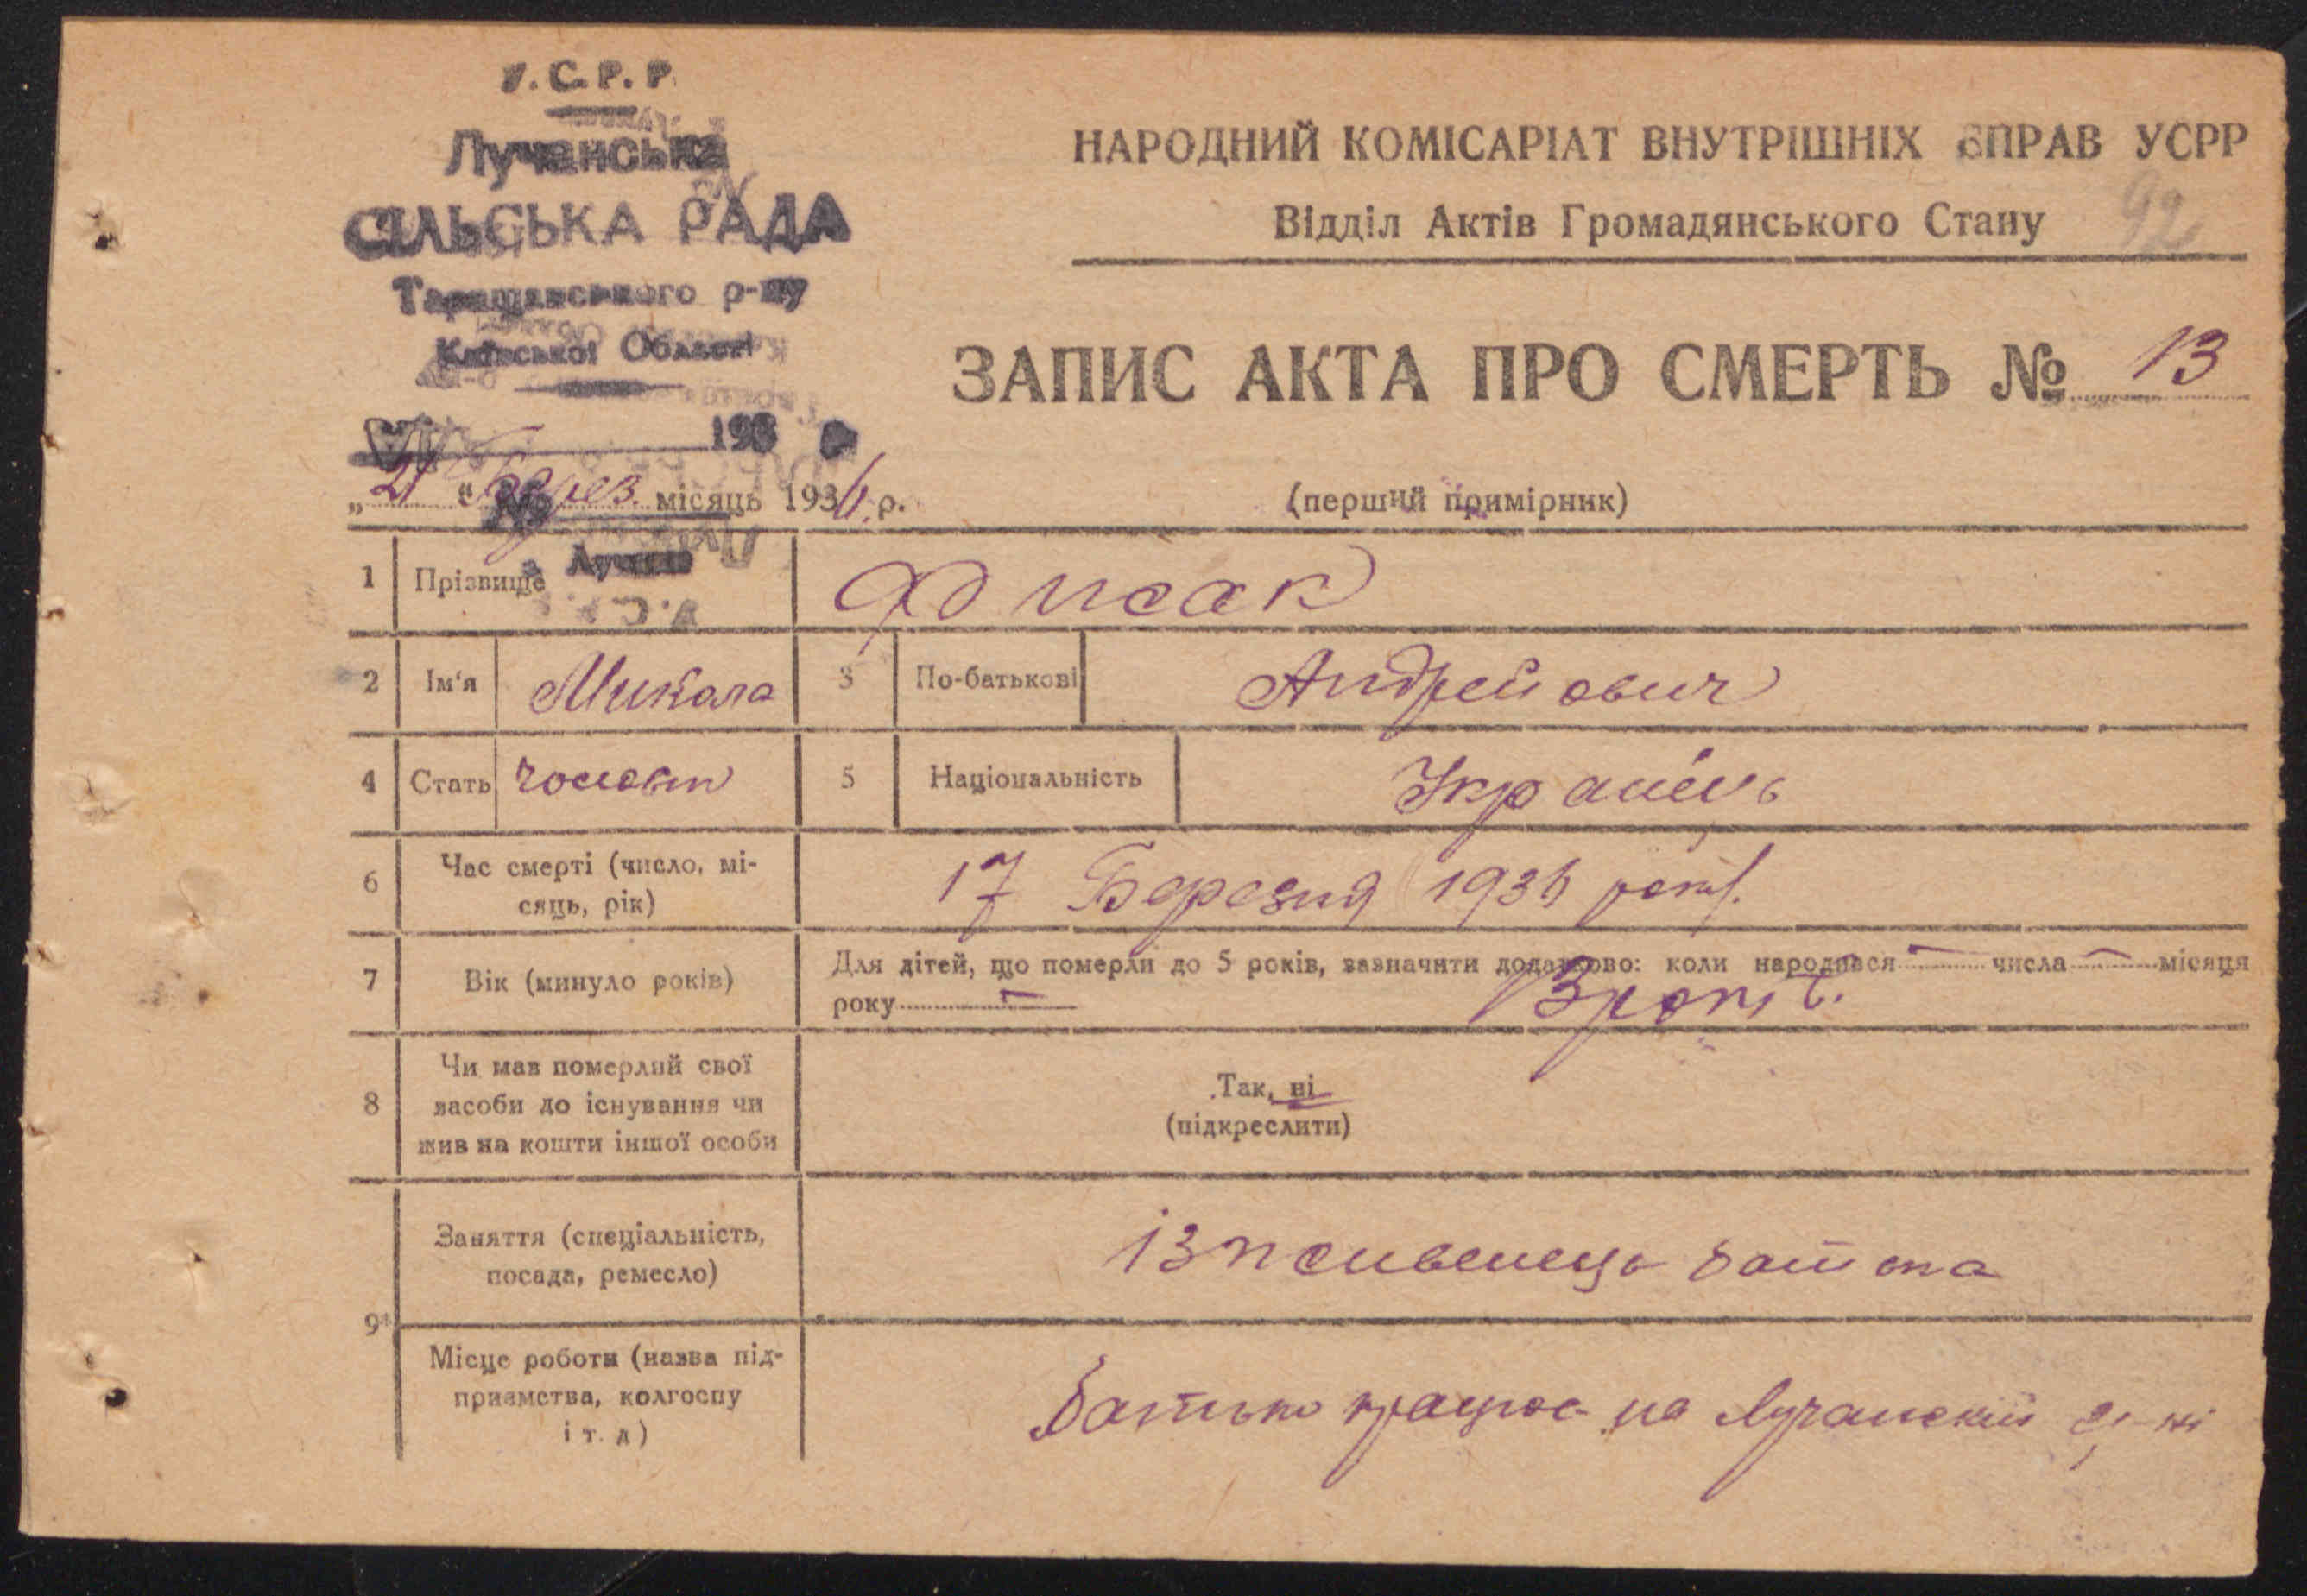 У.С.Р.Р.
Лучанська
СІЛЬСЬКА РАДА
Таращанського р-ну
Київської Області
193 р
№
с. Лучани
НАРОДНИЙ КОМІСАРІАТ ВНУТРІШНІХ СПРАВ УСРР
Відділ Актів Громадянського Стану
92
ЗАПИС АКТА ПРО СМЕРТЬ № 13
„21“ Берез місяць 1936 р.
(перший примірник)
1 Прізвище Фисак
2 Ім‘я Микола 3 По-батькові Андрейович
4 Стать чоловіч 5 Національність Українець
6 Час смерті (число, мі-
сяць, рік) 17 Березня 1936 року.
7 Вік (минуло років) Для дітей, що померли до 5 років, зазначити додатково: коли народився — числа — місяця
року — 13 років.
8 Чи мав померлий свої
засоби до існування чи
жив на кошти іншої особи
Так, ні
(підкреслити)
9 Заняття (спеціальність,
посада, ремесло) батька
Місце роботи (назва під-
приємства, колгоспу
і т. д)
Батько працює на Лучанский